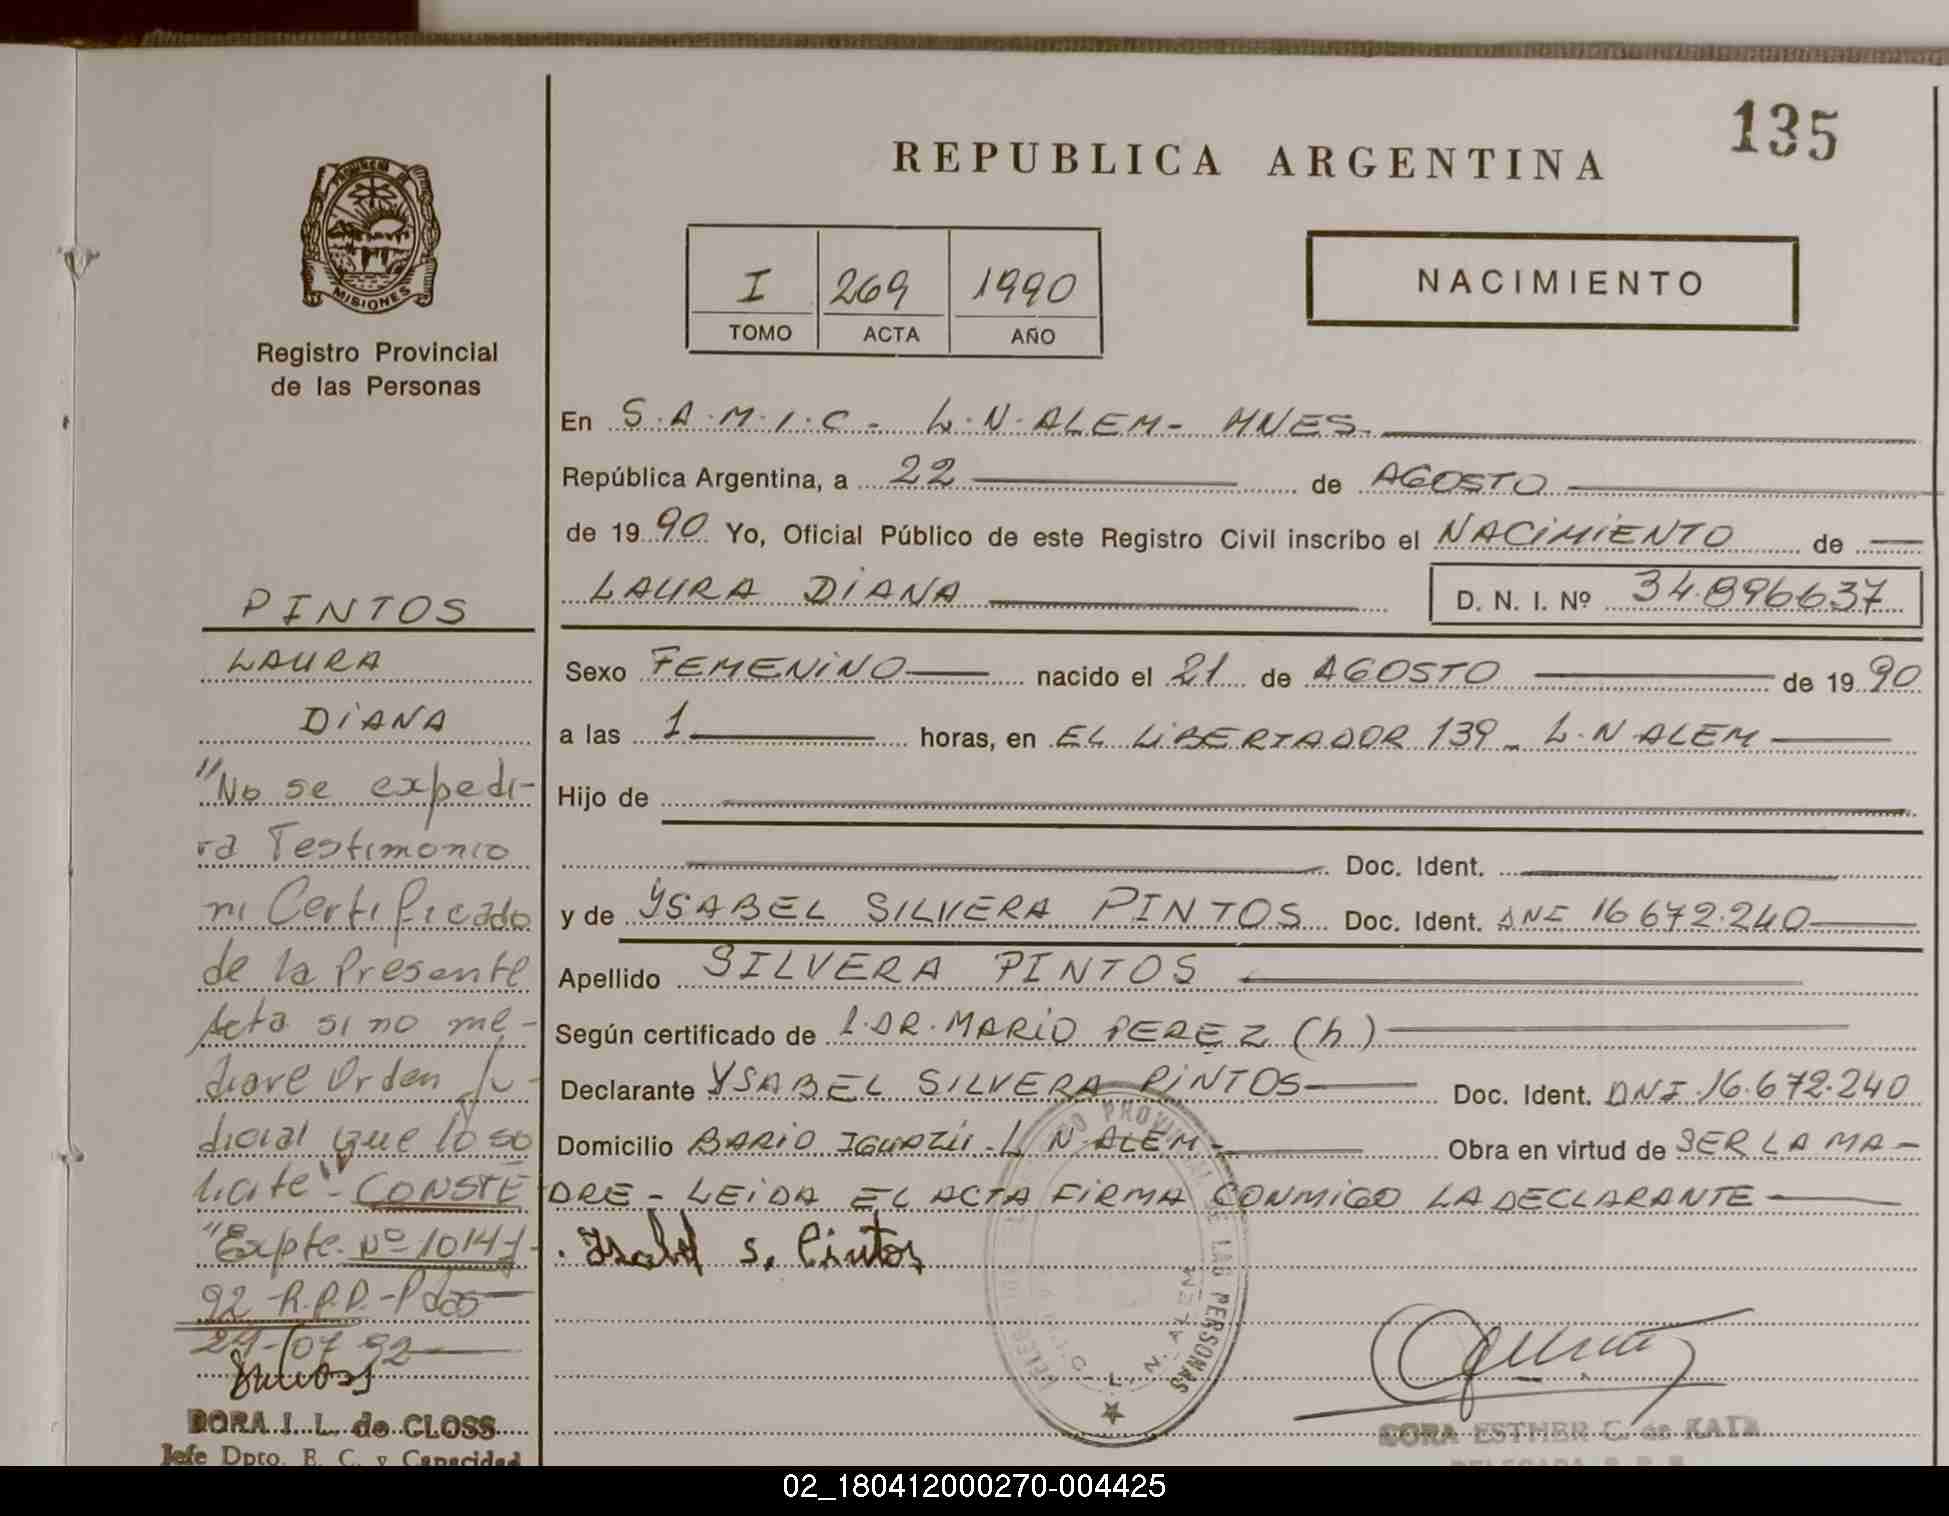 135
REPUBLICA ARGENTINA
I 269 1990
TOMO ACTA AÑO
NACIMIENTO
MISIONES
Registro Provincial
de las Personas
En S.A.M.I.C - L.N.ALEM - MNES.
República Argentina, a 22 de AGOSTO
de 1990 Yo, Oficial Público de este Registro Civil inscribo el NACIMIENTO de
LAURA DIANA D. N. I. Nº 34.896637
Sexo FEMENINO nacido el 21 de AGOSTO de 1990
a las 1 horas, en EL LIBERTADOR 139 - L.N ALEM
Hijo de
Doc. Ident.
y de YSABEL SILVERA PINTOS Doc. Ident. DNI 16 672.240
Apellido SILVERA PINTOS
Según certificado de 1.DR.MARIO PEREZ (h)
Declarante YSABEL SILVERA PINTOS Doc. Ident. DNI.16.672.240
Domicilio BARIO IGUAZÚ - L N ALEM - Obra en virtud de SER LA MA-
DRE - LEIDA EL ACTA FIRMA CONMIGO LA DECLARANTE
Isabel s. Pintos
PINTOS
LAURA
DIANA
"No se expedi-
ra Testimonio
ni Certificado
de la Presente
Acta si no me-
diare Orden Ju-
dicial que lo so
licite" - CONSTE
"Expte. Nº 1014
92 - R.P.P. - Pdas
24-/07 92
DORA I. L. de CLOSS
Jefe Dpto. E. C. y Capacidad
PROVINCIAL DE LAS PERSONAS
L. N. ALEM
DORA ESTHER C. de KATA
DELEGADA
02_180412000270-004425